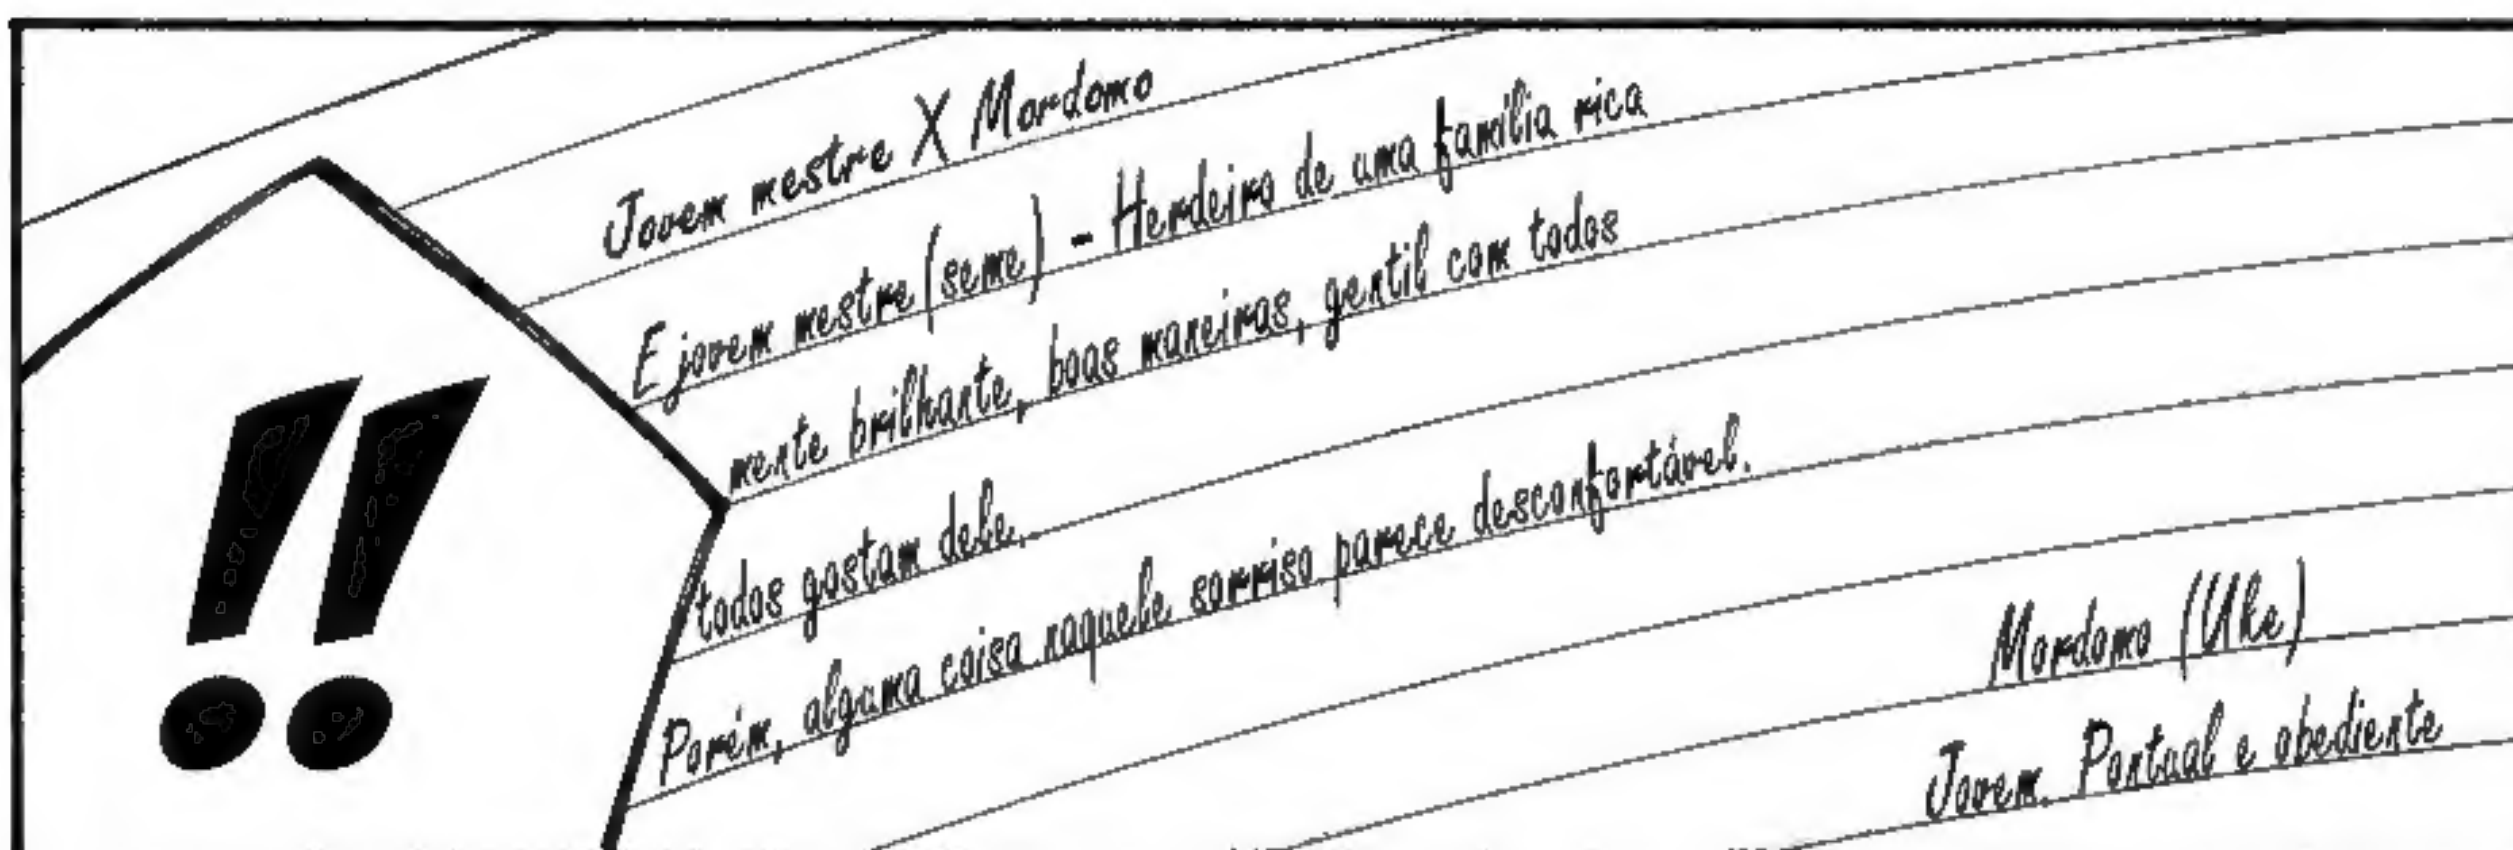 !!
Jovem mestre X Mordomo
E jovem mestre (seme) - Herdeiro de uma família rica
mente brilhante, boas maneiras, gentil com todos
todos gostam dele.
Porém, alguma coisa naquele sorriso parece desconfortável.
Mordomo (Uke)
Jovem. Pontual e obediente